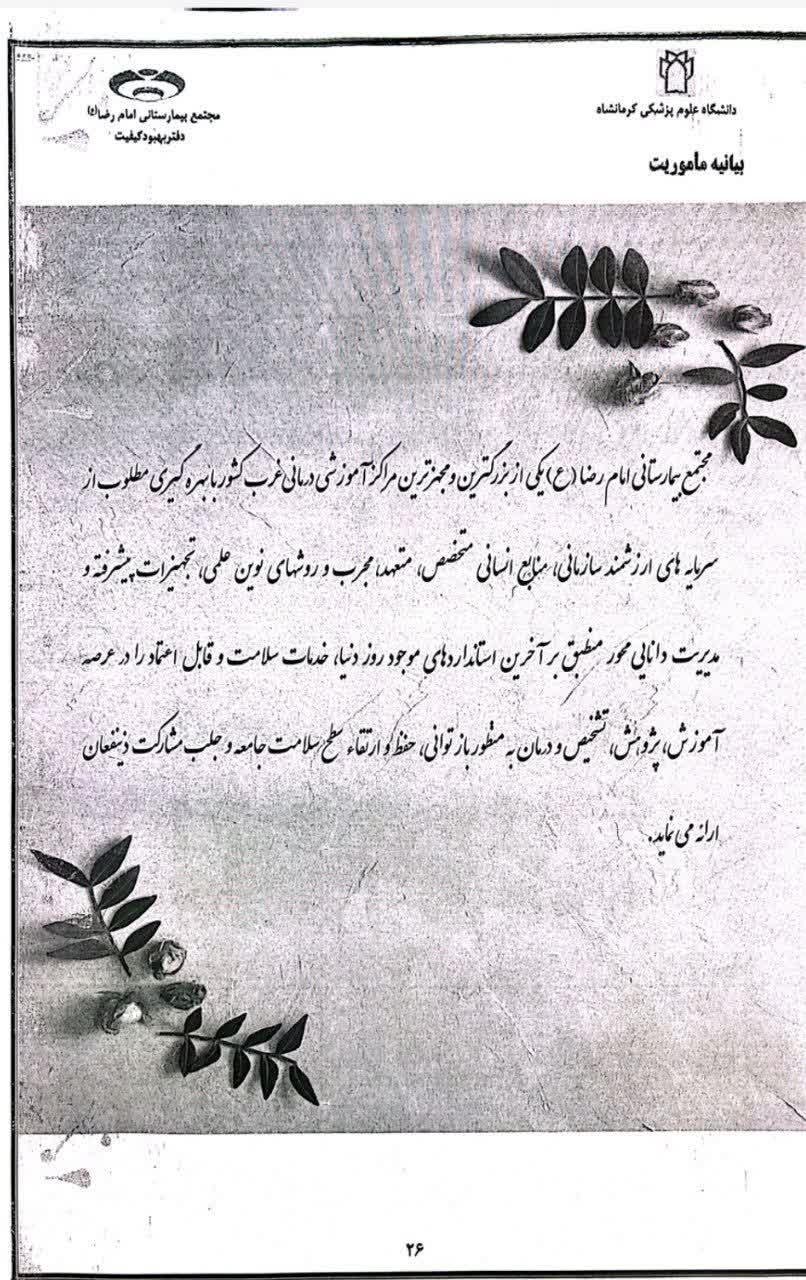 دانشگاه علوم پزشکی کرمانشاه
مجتمع بیمارستانی امام رضا(ع)
دفتر بهبود کیفیت
بیانیه مأموریت
مجتمع بیمارستانی امام رضا (ع) یکی از بزرگترین و مجهزترین مراکز آموزشی درمانی غرب کشور با بهره گیری مطلوب از
سرمایه های ارزشمند سازمانی، منابع انسانی متخصص، متعهد، مجرب و روشهای نوین علمی، تجهیزات پیشرفته و
مدیریت دانایی محور منطبق بر آخرین استانداردهای موجود روز دنیا، خدمات سلامت و قابل اعتماد را در عرصه
آموزش، پژوهش، تشخیص و درمان به منظور بازتوانی، حفظ و ارتقاء سطح سلامت جامعه و جلب مشارکت ذینفعان
ارائه می نماید.
۲۶